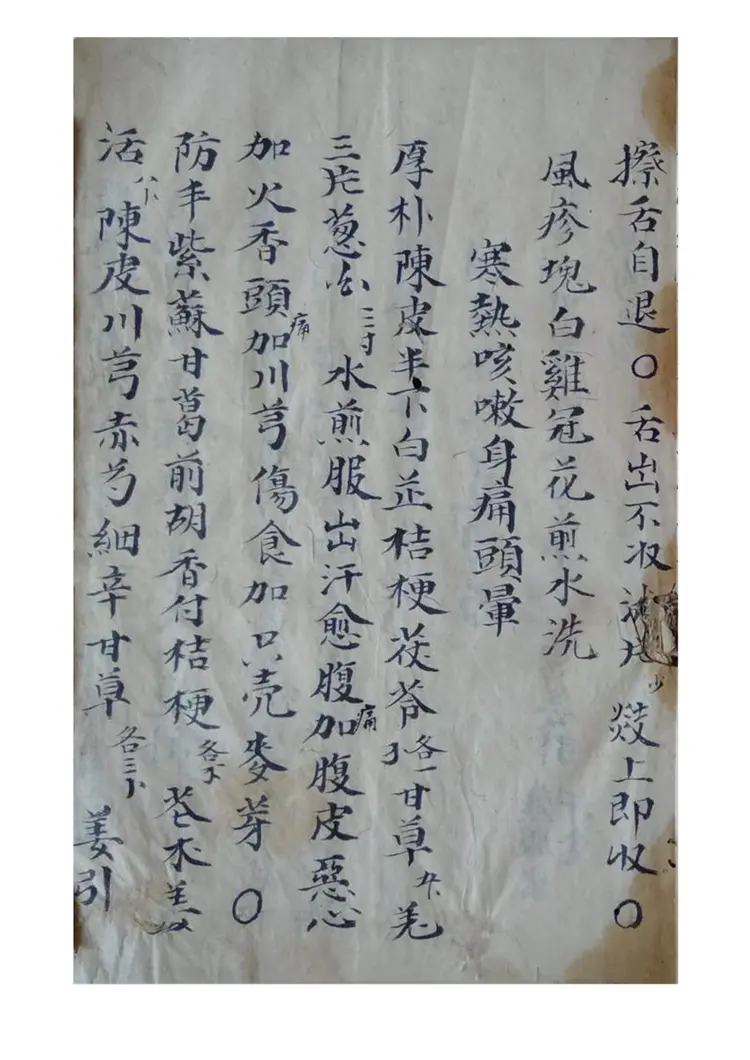 擦舌自退〇舌出不收冰片少燚上即收〇
風疹塊白雞冠花煎水洗
寒熱咳嗽身痛頭暈
厚朴陳皮半下白芷桔梗茯苓各一甘草羌
三片葱白三寸水煎服出汗愈腹痛加腹皮惡心
加火香頭痛加川芎傷食加只壳麥芽〇
防丰紫蘇甘葛前胡香付桔梗各蒼朮羌
活陳皮川芎赤芍細辛甘草各三姜引